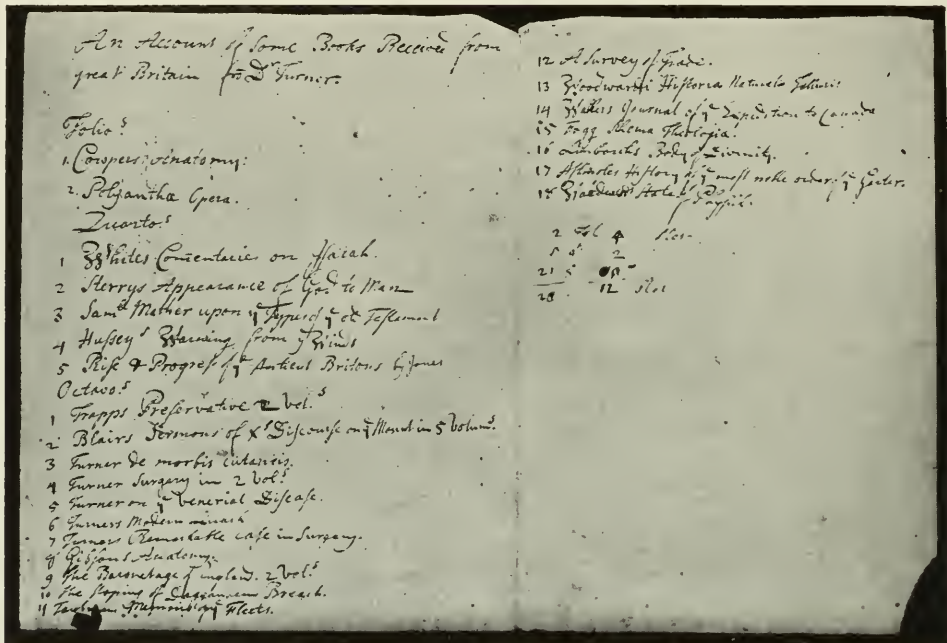 An Account of Some Books Received from
great Britain from Dr Turner.
Folio.s
1. Cowpers Anatomy:
2. Polyantha Opera.
Quarto.s
1 Whites Comentaries on Isaiah.
2 Sterrys Appearance of God to Man
3 Sam.ll Mather upon ye Types of ye old Testament
4 Hussey's Warning from ye Winds
5 Rise & Progress of ye Antient Britons by Jones
Octavo.s
1 Trapps Preservative 2 Vol.s
2 Blairs Sermons of Xs Discourse on ye Mount in 5 Volum.s
3 Turner de morbis cutaneis.
4 Turner Surgery in 2 Vol.s
5 Turner on ye Venerial Disease.
6 Turners Modern Quack
7 Turners Remarkable case in Surgery.
8 Gibsons Anatomy.
9 The Baronetage of England. 2 Vol.s
10 The Stoping of Daggenham Breach.
11 ye Fleets.
12 A Survey of Trade.
13 Woodwardi Historia Naturalis Telluris
14 Walkers Journal of ye Expedition to Canada
15 Fogg Theologia.
16 Limborchs Body of Divinity.
17 Ashmoles History of ye most noble order of ye Garter.
18 State of Physick.
2 Fol 4
5 4o 2
21 8o
28. 12